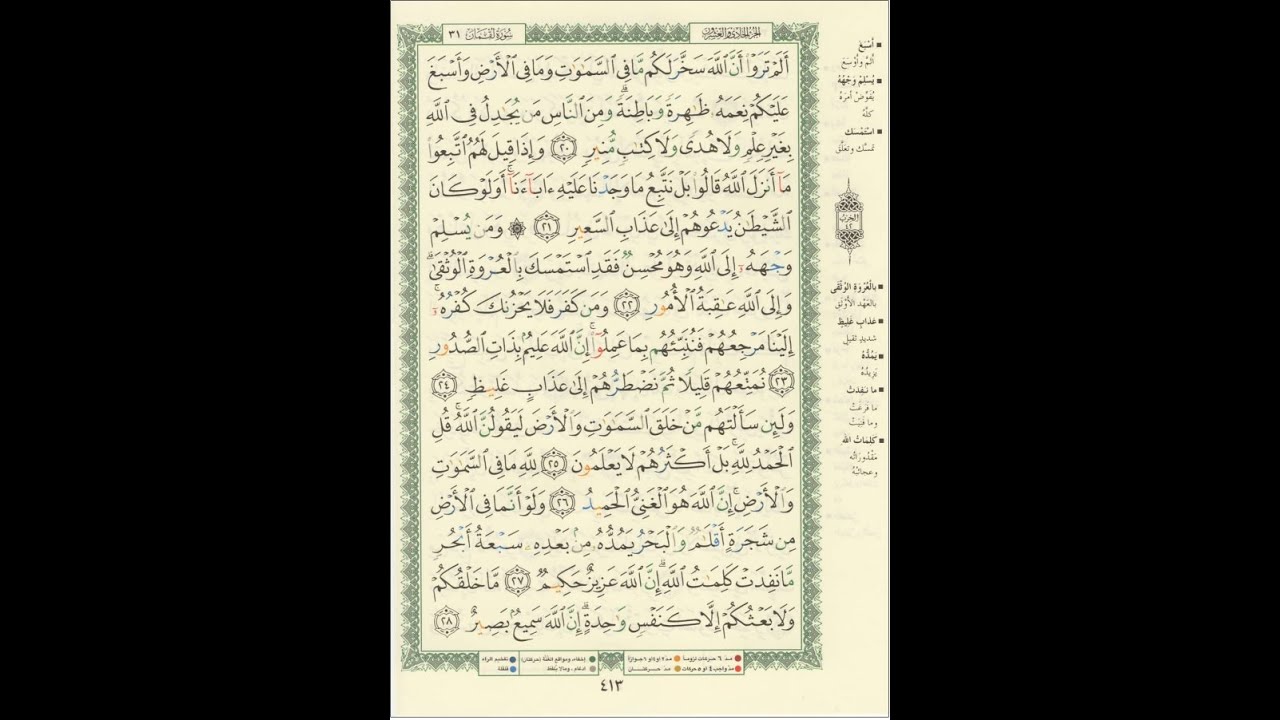 الجزء الحادي والعشرون
سورة لقمان ٣١
أَلَمْ تَرَوْا۟ أَنَّ ٱللَّهَ سَخَّرَ لَكُم مَّا فِى ٱلسَّمَـٰوَٰتِ وَمَا فِى ٱلْأَرْضِ وَأَسْبَغَ
عَلَيْكُمْ نِعَمَهُۥ ظَـٰهِرَةً وَبَاطِنَةً ۗ وَمِنَ ٱلنَّاسِ مَن يُجَـٰدِلُ فِى ٱللَّهِ
بِغَيْرِ عِلْمٍ وَلَا هُدًى وَلَا كِتَـٰبٍ مُّنِيرٍ ٢٠ وَإِذَا قِيلَ لَهُمُ ٱتَّبِعُوا۟
مَآ أَنزَلَ ٱللَّهُ قَالُوا۟ بَلْ نَتَّبِعُ مَا وَجَدْنَا عَلَيْهِ ءَابَآءَنَآ ۚ أَوَلَوْ كَانَ
ٱلشَّيْطَـٰنُ يَدْعُوهُمْ إِلَىٰ عَذَابِ ٱلسَّعِيرِ ٢١ ۞ وَمَن يُسْلِمْ
وَجْهَهُۥٓ إِلَى ٱللَّهِ وَهُوَ مُحْسِنٌ فَقَدِ ٱسْتَمْسَكَ بِٱلْعُرْوَةِ ٱلْوُثْقَىٰ ۗ
وَإِلَى ٱللَّهِ عَـٰقِبَةُ ٱلْأُمُورِ ٢٢ وَمَن كَفَرَ فَلَا يَحْزُنكَ كُفْرُهُۥٓ ۚ
إِلَيْنَا مَرْجِعُهُمْ فَنُنَبِّئُهُم بِمَا عَمِلُوٓا۟ ۚ إِنَّ ٱللَّهَ عَلِيمٌۢ بِذَاتِ ٱلصُّدُورِ
٢٣ نُمَتِّعُهُمْ قَلِيلًا ثُمَّ نَضْطَرُّهُمْ إِلَىٰ عَذَابٍ غَلِيظٍ ٢٤
وَلَئِن سَأَلْتَهُم مَّنْ خَلَقَ ٱلسَّمَـٰوَٰتِ وَٱلْأَرْضَ لَيَقُولُنَّ ٱللَّهُ ۚ قُلِ
ٱلْحَمْدُ لِلَّهِ ۚ بَلْ أَكْثَرُهُمْ لَا يَعْلَمُونَ ٢٥ لِلَّهِ مَا فِى ٱلسَّمَـٰوَٰتِ
وَٱلْأَرْضِ ۚ إِنَّ ٱللَّهَ هُوَ ٱلْغَنِىُّ ٱلْحَمِيدُ ٢٦ وَلَوْ أَنَّمَا فِى ٱلْأَرْضِ
مِن شَجَرَةٍ أَقْلَـٰمٌ وَٱلْبَحْرُ يَمُدُّهُۥ مِنۢ بَعْدِهِۦ سَبْعَةُ أَبْحُرٍ
مَّا نَفِدَتْ كَلِمَـٰتُ ٱللَّهِ ۗ إِنَّ ٱللَّهَ عَزِيزٌ حَكِيمٌ ٢٧ مَّا خَلْقُكُمْ
وَلَا بَعْثُكُمْ إِلَّا كَنَفْسٍ وَٰحِدَةٍ ۗ إِنَّ ٱللَّهَ سَمِيعٌۢ بَصِيرٌ ٢٨
أسْبَغَ
أتمّ وأوسَعَ
يُسْلِمْ وَجْهَهُ
يُفوِّضْ أمرَهُ
كلَّهُ
اسْتَمْسَك
تمسّك وتعلّق
الحزب
٤٢
بالْعُرْوَةِ الوُثْقى
بالعَهْدِ الأوْثَقِ
عَذابٍ غَلِيظٍ
شديدٍ ثقيلٍ
يَمُدُّهُ
يَزيدُهُ
ما نفِدتْ
ما فَرَغتْ
وما فَنِيَتْ
كَلِمَاتُ الله
مَقْدُوراتُه
وعجائبُهُ
مدّ ٦ حركات لزوماً مدّ ٢ أو ٤ أو ٦ جوازاً
مدّ واجب ٤ أو ٥ حركات مدّ حركتان
إخفاء، ومواقع الغنّة (حركتان) تفخيم الراء
إدغام، وما لا يُلفظ قلقلة
٤١٣